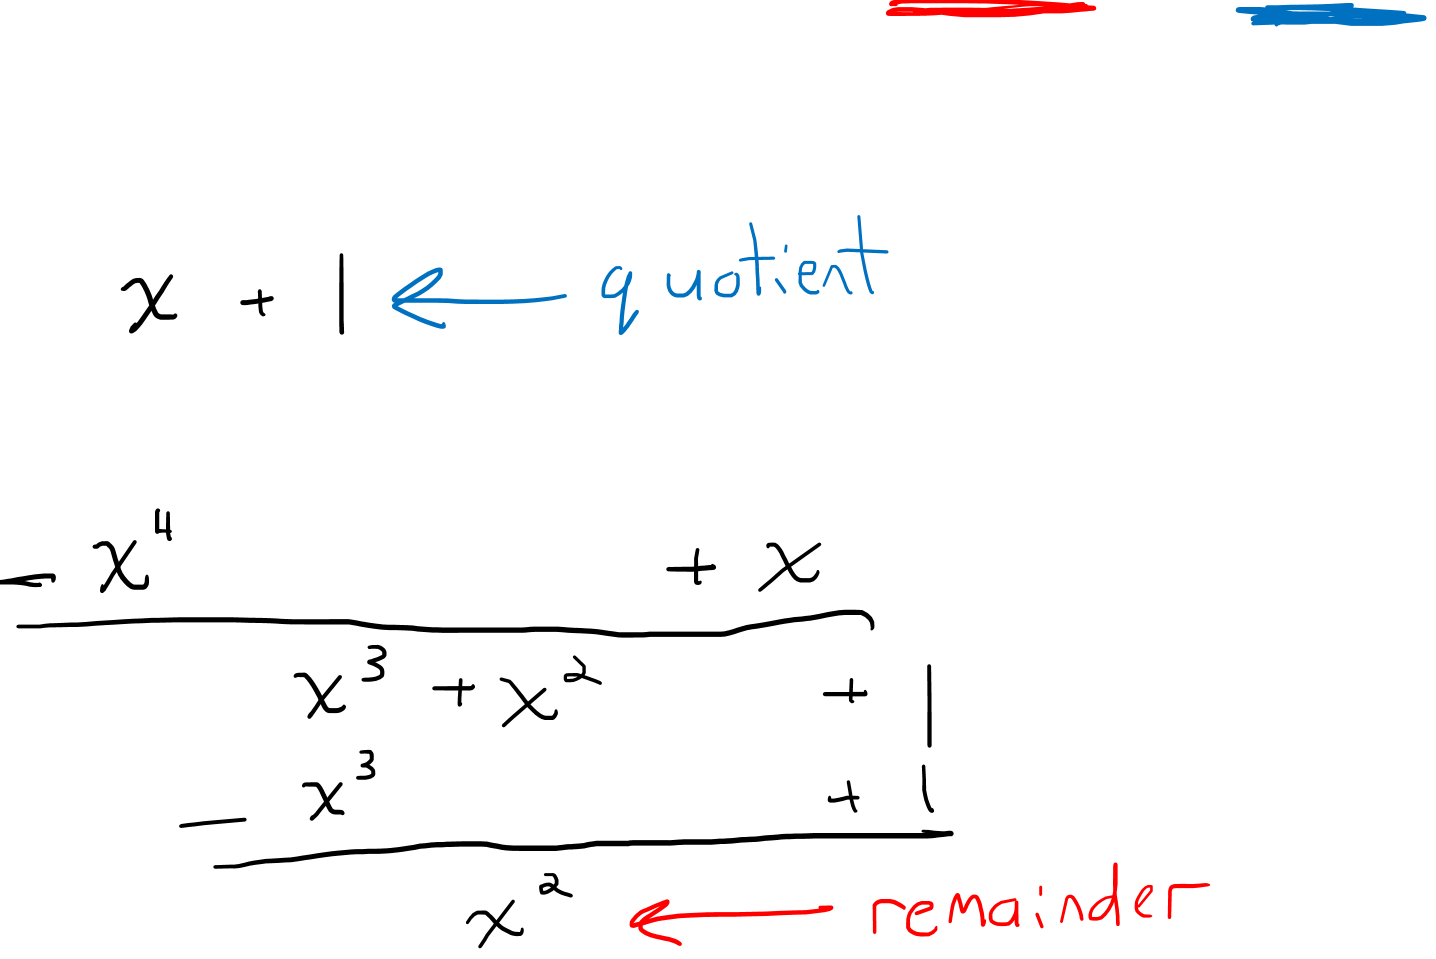 x + 1 ← quotient
- x⁴ + x
x³ + x² + 1
- x³ + 1
x² ← remainder